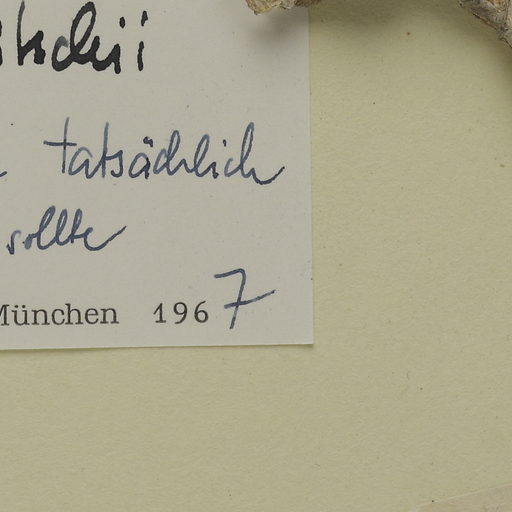 tatsächlich
sollte
München 1967